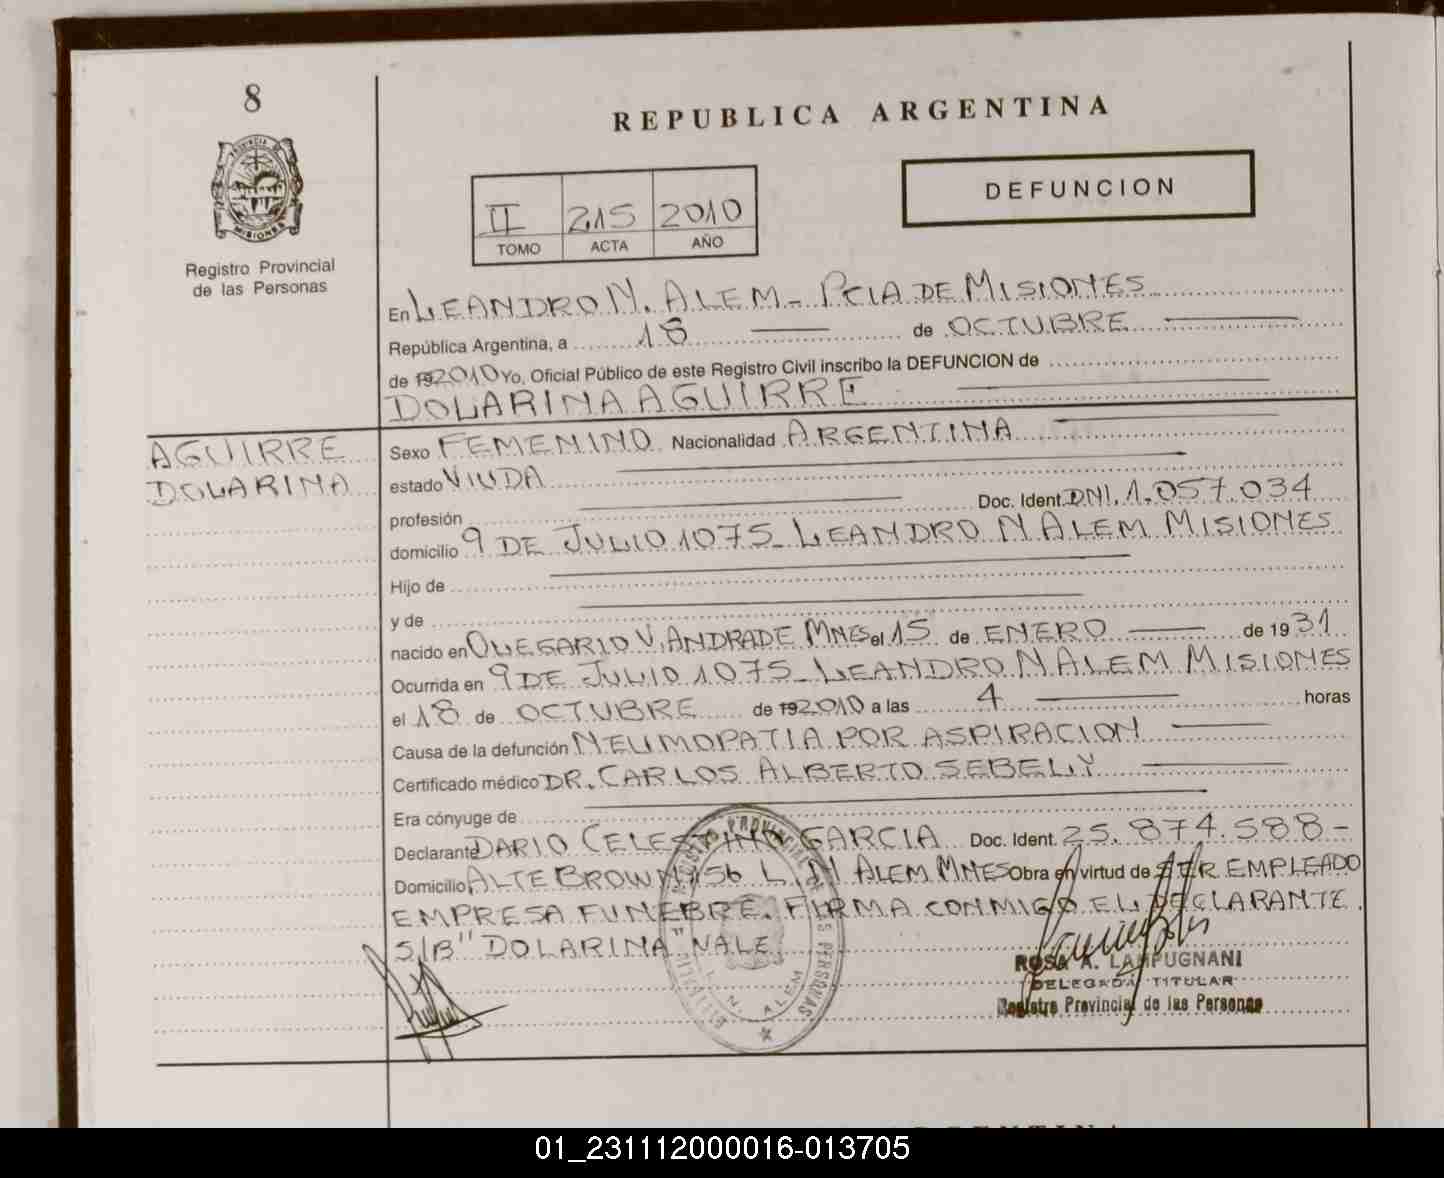 8
REPUBLICA ARGENTINA
PROVINCIA DE
MISIONES
Registro Provincial
de las Personas
DEFUNCION
II 215 2010
TOMO ACTA AÑO
En LEANDRO N. ALEM - PCIA DE MISIONES
República Argentina, a 18 de OCTUBRE
de 192010 Yo, Oficial Público de este Registro Civil inscribo la DEFUNCION de
DOLARINA AGUIRRE
AGUIRRE
DOLARINA
Sexo FEMENINO Nacionalidad ARGENTINA
estado VIUDA
profesión Doc. Ident. DNI. 1.057.034
domicilio 9 DE JULIO 1075 - LEANDRO N ALEM MISIONES
Hijo de
y de
nacido en OLEGARIO V. ANDRADE MNES el 15 de ENERO de 1931
Ocurrida en 9 DE JULIO 1075 - LEANDRO N ALEM MISIONES
el 18 de OCTUBRE de 192010 a las 4 horas
Causa de la defunción NEUMOPATIA POR ASPIRACION
Certificado médico DR. CARLOS ALBERTO SEBELY
Era cónyuge de
Declarante DARIO CELESTINO GARCIA Doc. Ident. 25.874.588-
Domicilio ALTE BROWN 756 L. N ALEM MNES Obra en virtud de SER EMPLEADO
EMPRESA FUNEBRE. FIRMA CONMIGO EL DECLARANTE.
S/B" DOLARINA VALE
REGISTRO PROVINCIAL DE LAS PERSONAS
L. N. ALEM
ROSA A. LAMPUGNANI
DELEGADA TITULAR
Registro Provincial de las Personas
01_231112000016-013705